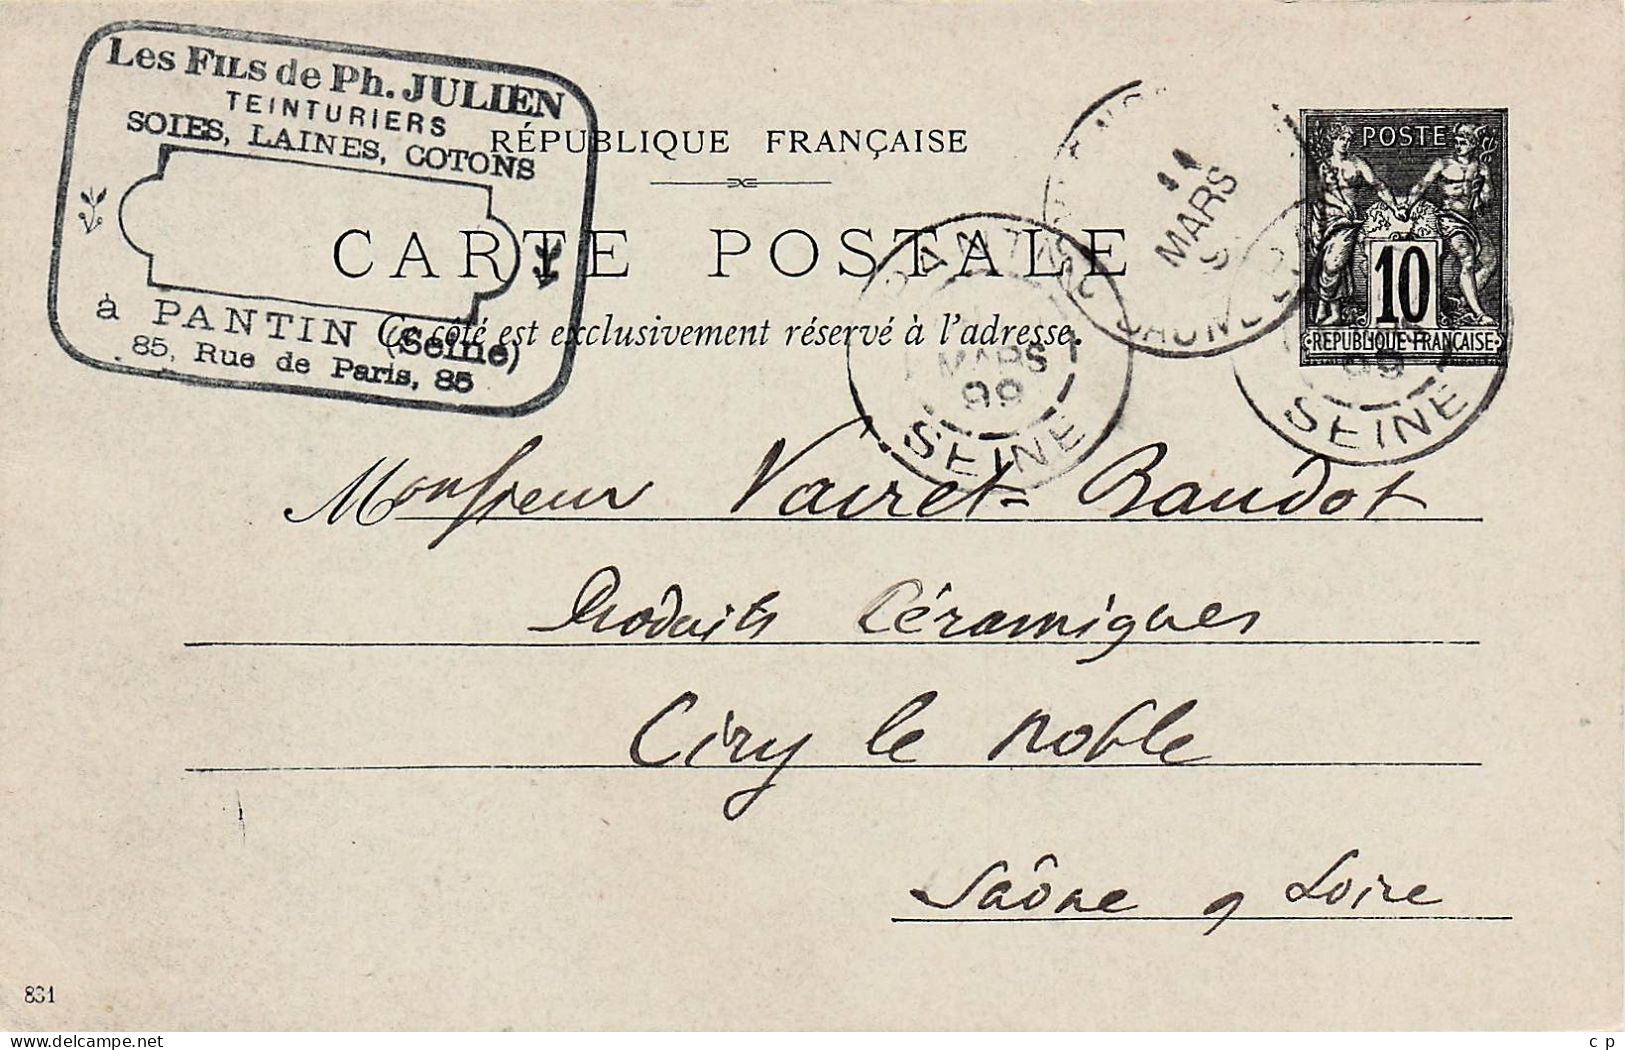 Les Fils de Ph. JULIEN
TEINTURIERS
SOIES, LAINES, COTONS
à PANTIN (Seine)
85, Rue de Paris, 85
RÉPUBLIQUE FRANÇAISE
CARTE POSTALE
Ce côté est exclusivement réservé à l'adresse.
PANTIN
MARS
99
SEINE
11
MARS
SAONE
POSTE
10
REPUBLIQUE FRANÇAISE
99
SEINE
Monsieur Vairet-Baudot
Produits Céramiques
Ciry le noble
Saône & Loire
831
www.delcampe.net
c p